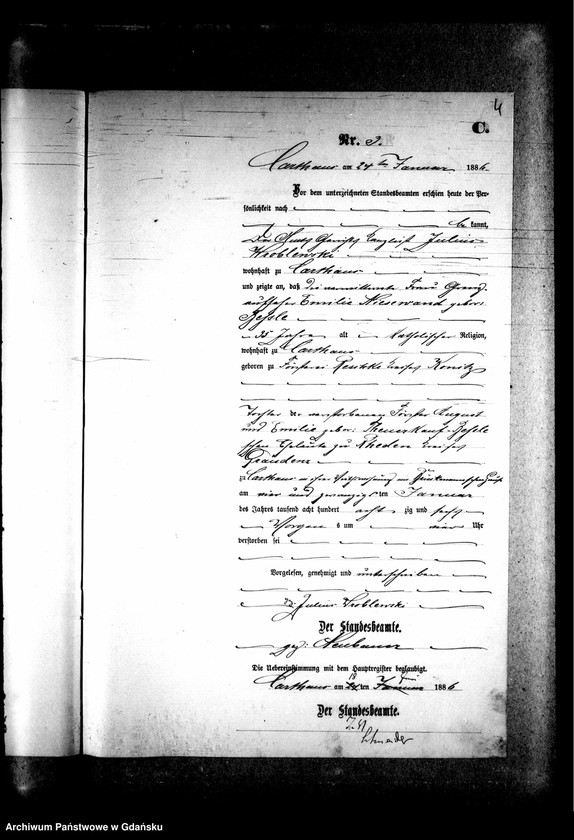 4
C.
Nr. 9.
Carthaus am 24ten Januar 1886.
Vor dem unterzeichneten Standesbeamten erschien heute der Per-
sönlichkeit nach
be kannt,
Der Gerichts Kanzlist Julius
Wroblewski
wohnhaft zu Carthaus
und zeigte an, daß die verwittwete Frau
aufseher Emilie Niesewand gebor:
35 Jahre alt Katholischer Religion,
wohnhaft zu Carthaus
geboren zu Försterei Kreises Konitz
Tochter der verstorbenen Förster August
und Emilie gebor:
schen Eheleute zu Rheden Kreises
Graudenz
zu Carthaus in ihrer
am vier und zwanzigsten Januar
des Jahres tausend acht hundert acht zig und sechs
Morgen s um vier Uhr
verstorben sei
Vorgelesen, genehmigt und unterschrieben
Julius Wroblewski
Der Standesbeamte.
gez: Neubauer
Die Uebereinstimmung mit dem Hauptregister beglaubigt.
Carthaus am ten 1886
Der Standesbeamte.
Schneider
Archiwum Państwowe w Gdańsku